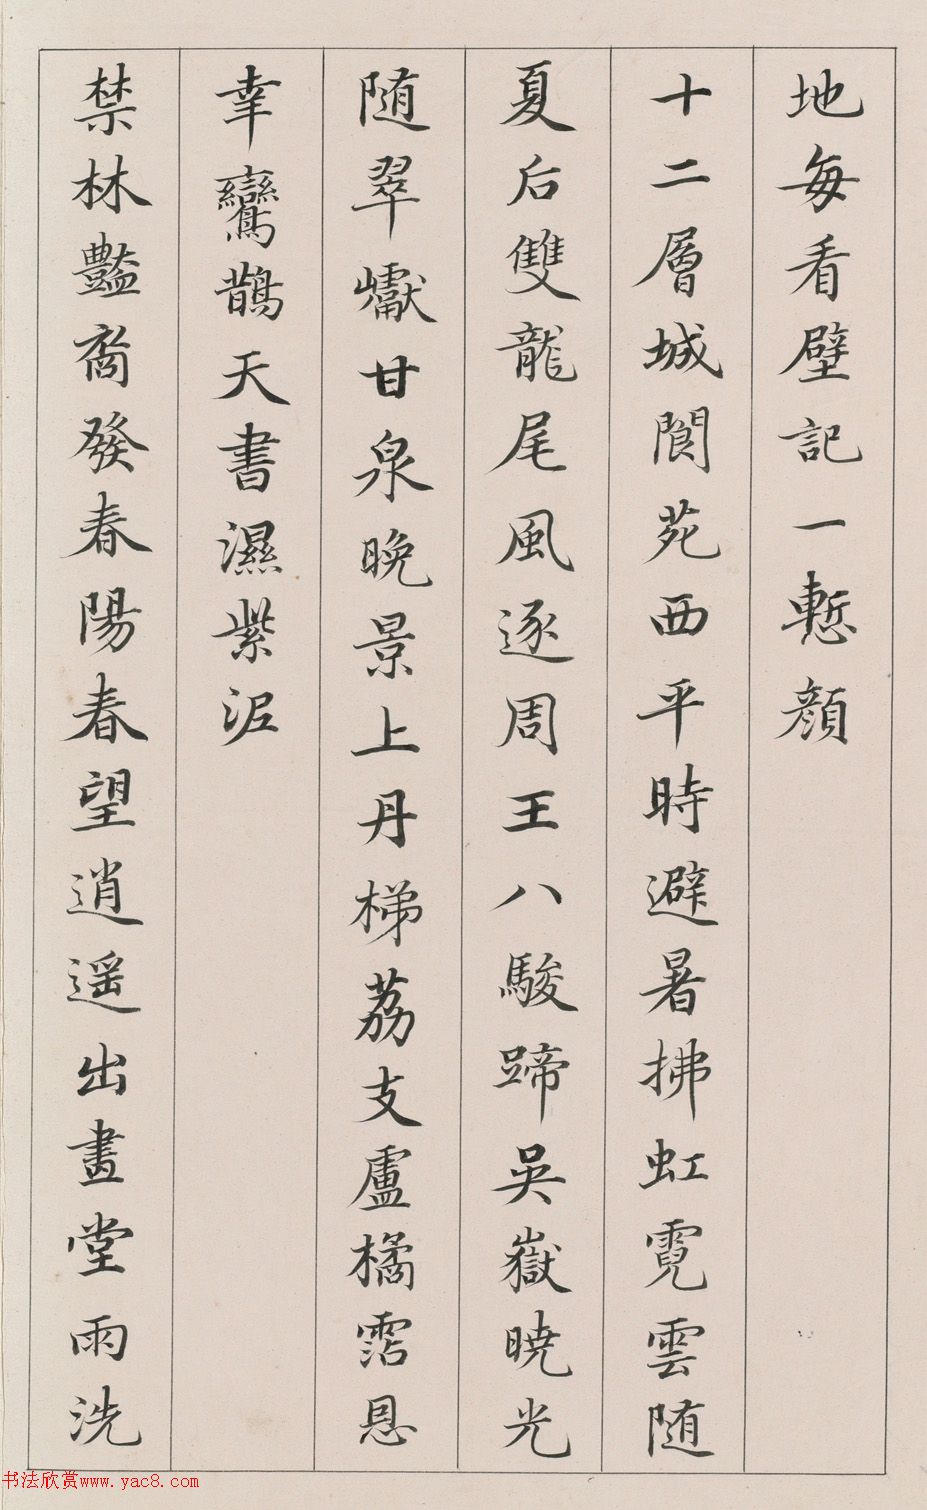 地每看壁記一慙顔
十二層城閬苑西平時避暑拂虹霓雲随
夏后雙龍尾風逐周王八駿蹄吳嶽曉光
随翠巘甘泉晚景上丹梯荔支盧橘霑恩
幸鸞鵲天書濕紫泥
禁林豔裔發春陽春望逍遥出畫堂雨洗
书法欣赏www.yac8.com